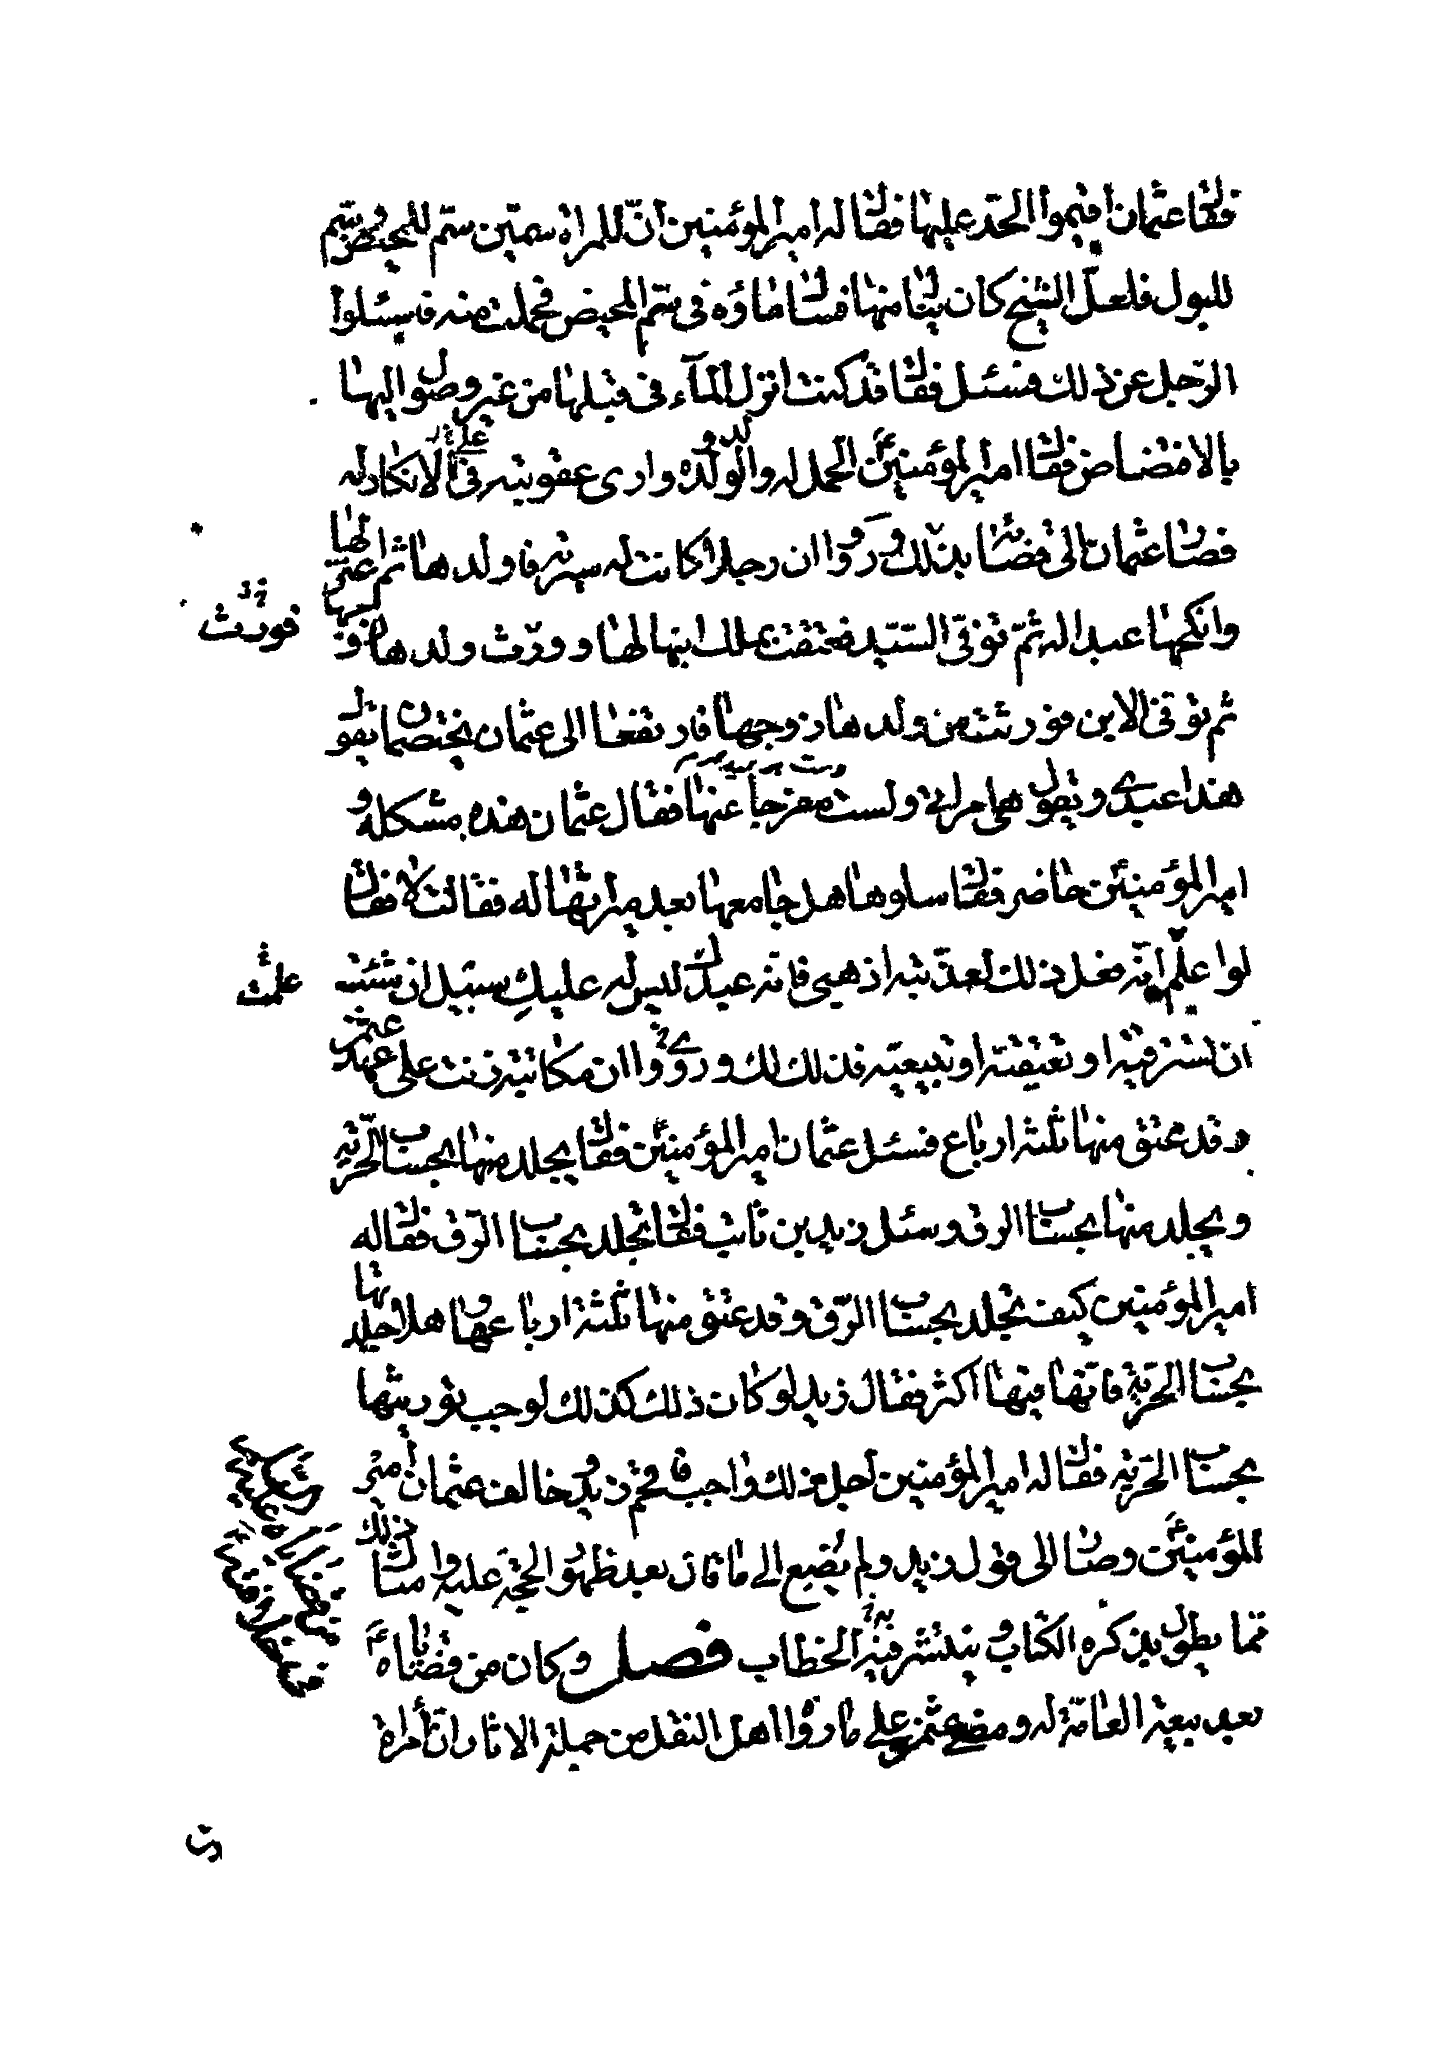 فقال عثمان أقيموا الحد عليها فقال له امير المؤمنين انّ للمراة سمّين سمّ للمحيض وسمّ
للبول فلعلّ الشيخ كان ينال منها فسال ماؤه في سمّ المحيض فحملت منه فاسئلوا
الرّجل عن ذلك فسئل فقال قد كنت انزل المآء في قبلها من غير وصول اليها
بالافتضاض فقال امير المؤمنين ع الحمل له والولد ولده وارى عقوبته في الانكار له
فصار عثمان الى قضائه بذلك ورووا ان رجلا كانت له سريّة فاولدها ثم اعتزلها
وانكحها عبدا له ثمّ توفّي السيّد فعتقت بملك ابنها لها وورّث ولدها زوجها
ثم توفي الابن فورثت من ولدها زوجها فارتفعا الى عثمان يختصمان تقول
هذا عبدي ويقول هي امراتي ولست مفرجا عنها فقال عثمان هذه مشكلة و
امير المؤمنين ع حاضر فقال سلوها هل جامعها بعد ميراثها له فقالت لا فقال
لوا علم انّه فعل ذلك لعذّبته اذهبي فانّه عبدك ليس له عليكِ سبيل ان شئت
ان تسترقيه او تعتقيه او تبيعيه فذلك لك ورووا ان مكاتبة زنت على عهد عثمن
وقد عتق منها ثلثة ارباع فسئل عثمان امير المؤمنين ع فقال يجلد منها بحساب الحرّية
ويجلد منها بحساب الرق وسئل زيد بن ثابت فقال تجلد بحساب الرّق فقال له
امير المؤمنين كيف تجلد بحساب الرّق وقد عتق منها ثلثة ارباعها وهلا جلدتها
بحساب الحرّية فانّها فيها اكثر فقال زيد لو كان ذلك كذلك لوجب توريثها
بحساب الحرّية فقال له امير المؤمنين اجل ذلك واجب فافحم زيد وخالف عثمان أمير
المؤمنين ع وصار الى قول زيد ولم يُصغ الى ما قال بعد ظهور الحجّة عليه وامثال ذلك
ممّا يطول بذكره الكتاب وينتشر فيه الخطاب فصل وكان من قضاياه ع
بعد بيعة العامّة له ومضي عثمن على ما رواه اهل النقل من حملة الاثار ان أمراة
فورثت
علمت